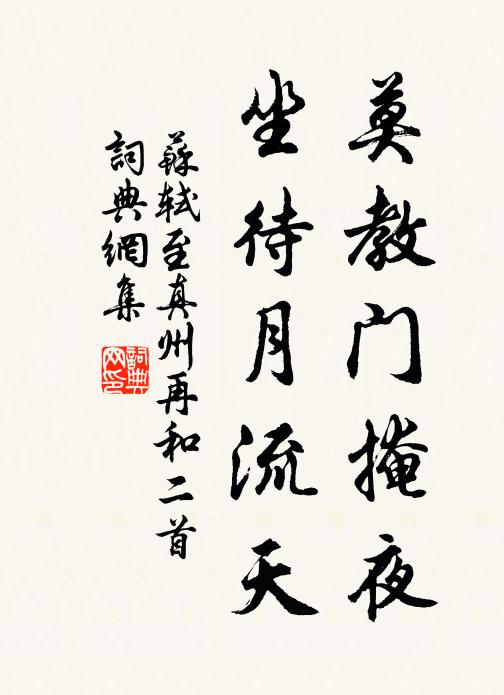 莫教門掩夜
坐待月流天
蘇軾至真州再和二首
詞典網集
詞典
网印